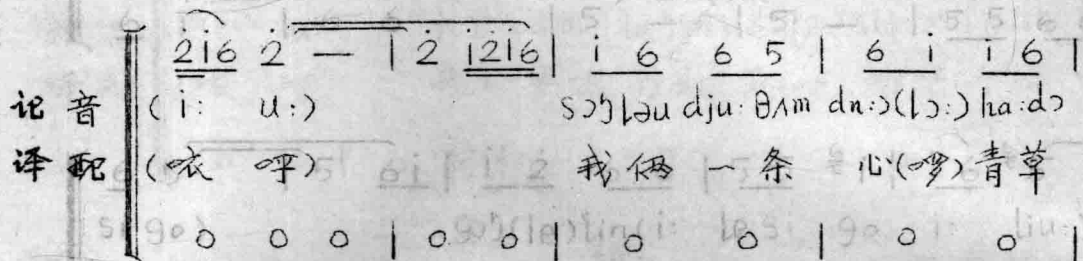 2̇i̇6 2̇ — | 2̇ i̇2̇i̇6 | i̇ 6 6 5 | 6 i̇ i̇ 6 |
记音 (i: u:) sɔŋləu dju: θʌm dn:ɔ(lɔ:) ha:dɔ
译配 (咴 呼) 我俩 一条 心(啰)青草
0 0 0 | 0 0 | 0 0 | 0 0 |